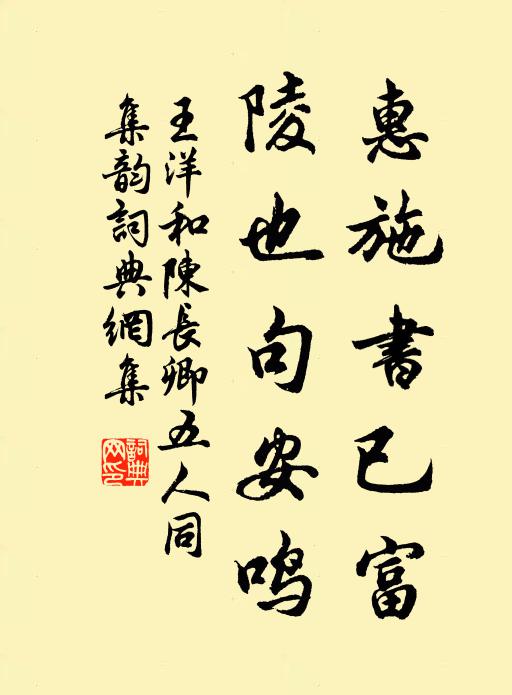 惠施書已富
陵也句安鳴
王洋和陳長卿五人同
集韵詞典網集
詞典網印